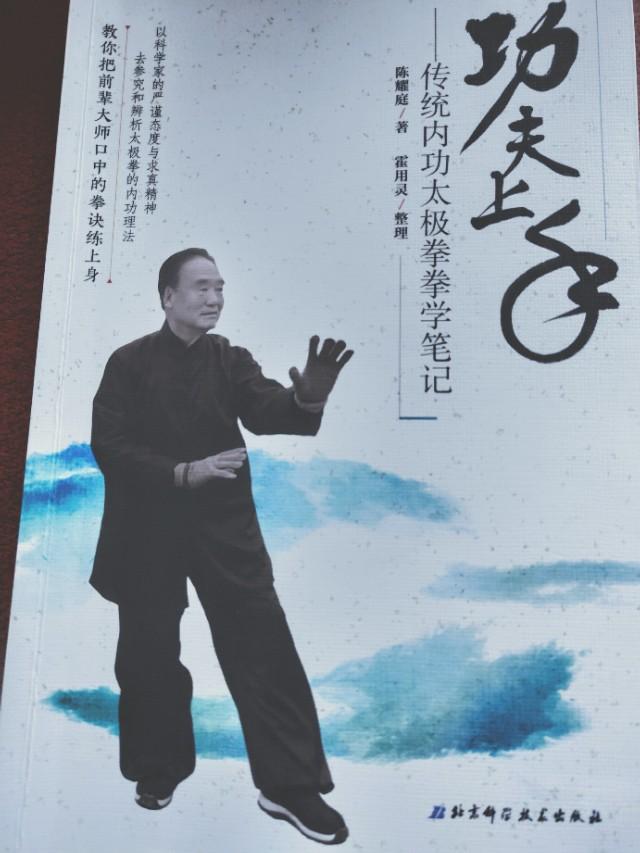 功夫上手
——传统内功太极拳拳学笔记
陈耀庭/著 霍用灵/整理
以科学家的严谨态度与求真精神
去参究和辨析太极拳的内功理法
教你把前辈大师口中的拳诀练上身
北京科学技术出版社